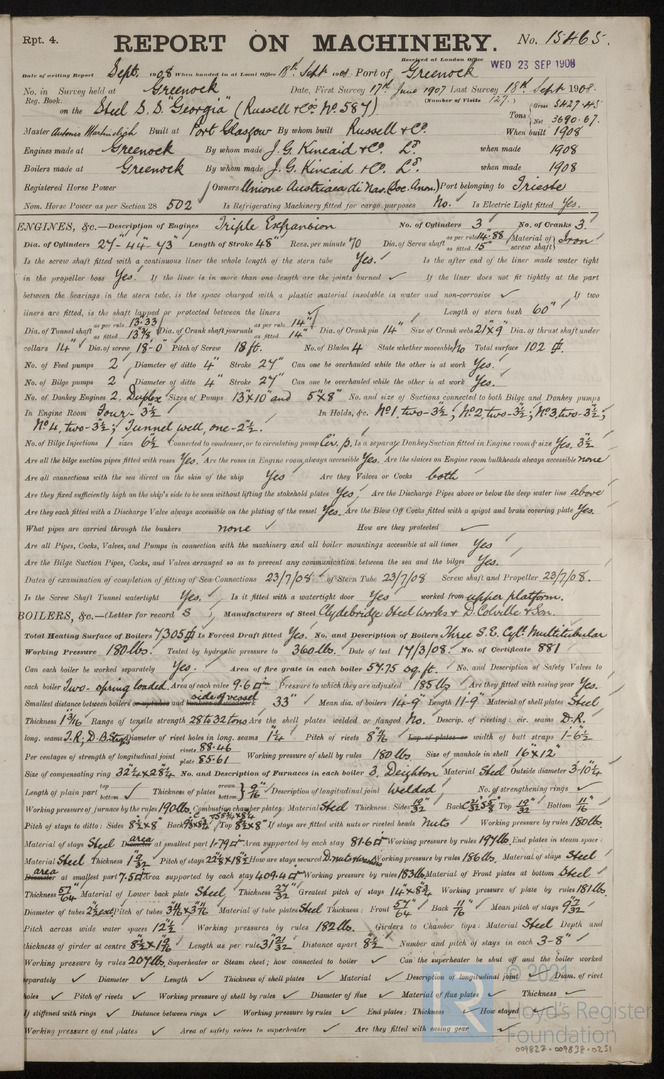 Rpt. 4.
REPORT ON MACHINERY. No. 15465.
Received at London Office WED 23 SEP 1908
Date of writing Report Sept. 1908 When handed in at Local Office 18th Sept 1908 Port of Greenock
No. in Survey held at Greenock Date, First Survey 17th June 1907 Last Survey 18th Sept 1908.
Reg. Book. (Number of Visits 127.)
on the Steel S.S. "Georgia" (Russell & Co. No. 587) Tons Gross 5427.45 Net 3690.67.
Master Built at Port Glasgow By whom built Russell & Co. When built 1908
Engines made at Greenock By whom made J. G. Kincaid & Co. Ld. when made 1908
Boilers made at Greenock By whom made J. G. Kincaid & Co. Ld. when made 1908
Registered Horse Power Owners Unione Austriaca di Nav. (Soc. Anon.) Port belonging to Trieste
Nom. Horse Power as per Section 28 502 Is Refrigerating Machinery fitted for cargo purposes No. Is Electric Light fitted Yes.
ENGINES, &c.—Description of Engines Triple Expansion No. of Cylinders 3 No. of Cranks 3.
Dia. of Cylinders 27"-44"-73" Length of Stroke 48" Revs. per minute 70 Dia. of Screw shaft as per rule 14.88 as fitted 15" Material of screw shaft Iron
Is the screw shaft fitted with a continuous liner the whole length of the stern tube Yes. Is the after end of the liner made water tight
in the propeller boss Yes. If the liner is in more than one length are the joints burned ✓ If the liner does not fit tightly at the part
between the bearings in the stern tube, is the space charged with a plastic material insoluble in water and non-corrosive ✓ If two
liners are fitted, is the shaft lapped or protected between the liners ✓ Length of stern bush 60"
Dia. of Tunnel shaft as per rule 13.33 as fitted 13 5/8" Dia. of Crank shaft journals as per rule 14" as fitted 14" Dia. of Crank pin 14" Size of Crank webs 21"x9" Dia. of thrust shaft under
collars 14" Dia. of screw 18-0" Pitch of Screw 18 ft. No. of Blades 4 State whether moveable No Total surface 102 ft.
No. of Feed pumps 2 Diameter of ditto 4" Stroke 27" Can one be overhauled while the other is at work Yes.
No. of Bilge pumps 2 Diameter of ditto 4" Stroke 27" Can one be overhauled while the other is at work Yes.
No. of Donkey Engines 2. Duplex Sizes of Pumps 13"x10" and 5"x8" No. and size of Suctions connected to both Bilge and Donkey pumps
In Engine Room Four-3½" In Holds, &c. No 1, two-3½"; No 2, two-3½"; No 3, two-3½";
No 4, two-3½"; Tunnel well, one-2½".
No. of Bilge Injections 1 sizes 6½ Connected to condenser, or to circulating pump Cir. p. Is a separate Donkey Suction fitted in Engine room & size Yes. 3½
Are all the bilge suction pipes fitted with roses Yes. Are the roses in Engine room always accessible Yes. Are the sluices on Engine room bulkheads always accessible none
Are all connections with the sea direct on the skin of the ship Yes Are they Valves or Cocks both
Are they fixed sufficiently high on the ship's side to be seen without lifting the stokehold plates Yes Are the Discharge Pipes above or below the deep water line above
Are they each fitted with a Discharge Valve always accessible on the plating of the vessel Yes. Are the Blow Off Cocks fitted with a spigot and brass covering plate Yes.
What pipes are carried through the bunkers none How are they protected ✓
Are all Pipes, Cocks, Valves, and Pumps in connection with the machinery and all boiler mountings accessible at all times Yes
Are the Bilge Suction Pipes, Cocks, and Valves arranged so as to prevent any communication between the sea and the bilges Yes.
Dates of examination of completion of fitting of Sea Connections 23/7/08. of Stern Tube 23/7/08 Screw shaft and Propeller 23/7/08.
Is the Screw Shaft Tunnel watertight Yes. Is it fitted with a watertight door Yes worked from upper platform.
BOILERS, &c.—(Letter for record S) Manufacturers of Steel Clydebridge Steel Works & D. Colville & Son.
Total Heating Surface of Boilers 7305 Is Forced Draft fitted Yes. No. and Description of Boilers Three S.E. Cyl. Multitubular
Working Pressure 180 lbs. Tested by hydraulic pressure to 360 lbs. Date of test 17/3/08. No. of Certificate 881
Can each boiler be worked separately Yes. Area of fire grate in each boiler 57.75 sq. ft. No. and Description of Safety Valves to
each boiler Two-spring loaded. Area of each valve 9.6 Pressure to which they are adjusted 185 lbs Are they fitted with easing gear Yes.
Smallest distance between boilers or uptakes and side of vessel 33" Mean dia. of boilers 14-9" Length 11-9" Material of shell plates Steel
Thickness 1 3/16" Range of tensile strength 28 to 32 tons Are the shell plates welded or flanged No. Descrip. of riveting: cir. seams D.R.
long. seams T.R., D.B. Straps Diameter of rivet holes in long. seams 1¼ Pitch of rivets 8 5/8 Lap of plates or width of butt straps 1-6½"
Per centages of strength of longitudinal joint rivets 88.46 plate 85.61 Working pressure of shell by rules 180 lbs Size of manhole in shell 16"x12"
Size of compensating ring 32¼x28¼ No. and Description of Furnaces in each boiler 3. Deighton Material Steel Outside diameter 3-10¼
Length of plain part top ✓ bottom Thickness of plates crown bottom 9/16" Description of longitudinal joint welded No. of strengthening rings ✓
Working pressure of furnace by the rules 190 lbs. Combustion chamber plates: Material Steel Thickness: Sides 19/32" Back Top 19/32 Bottom 11/16
Pitch of stays to ditto: Sides 8½x8" Back Top 8½x8" If stays are fitted with nuts or riveted heads Nuts Working pressure by rules 180 lbs
Material of stays Steel area at smallest part 1.79 Area supported by each stay 81.6 Working pressure by rules 197 lbs. End plates in steam space:
Material Steel Thickness 1 3/32 Pitch of stays 22½x18½ How are stays secured Working pressure by rules 186 lbs. Material of stays Steel
area at smallest part 7.50 Area supported by each stay 409.4 Working pressure by rules 183 lbs Material of Front plates at bottom Steel
Thickness 57/64" Material of Lower back plate Steel Thickness 27/32" Greatest pitch of stays 14x8¾ Working pressure of plate by rules 181 lbs
Diameter of tubes 2½ ext. Pitch of tubes 3 11/16 x 3 9/16 Material of tube plates Steel Thickness: Front 57/64" Back 11/16" Mean pitch of stays 9 9/32
Pitch across wide water spaces 12½ Working pressures by rules 182 lbs. Girders to Chamber tops: Material Steel Depth and
thickness of girder at centre 8½x1 9/16 Length as per rule 31 21/32 Distance apart 8½" Number and pitch of stays in each 3-8"
Working pressure by rules 207 lbs. Superheater or Steam chest; how connected to boiler ✓ Can the superheater be shut off and the boiler worked
separately ✓ Diameter ✓ Length ✓ Thickness of shell plates ✓ Material ✓ Description of longitudinal joint ✓ Diam. of rivet
holes ✓ Pitch of rivets ✓ Working pressure of shell by rules ✓ Diameter of flue ✓ Material of flue plates ✓ Thickness ✓
If stiffened with rings ✓ Distance between rings ✓ Working pressure by rules ✓ End plates: Thickness ✓ How stayed ✓
Working pressure of end plates ✓ Area of safety valves to superheater ✓ Are they fitted with easing gear ✓
© 2021
Lloyd's Register
Foundation
009827-009838-0251